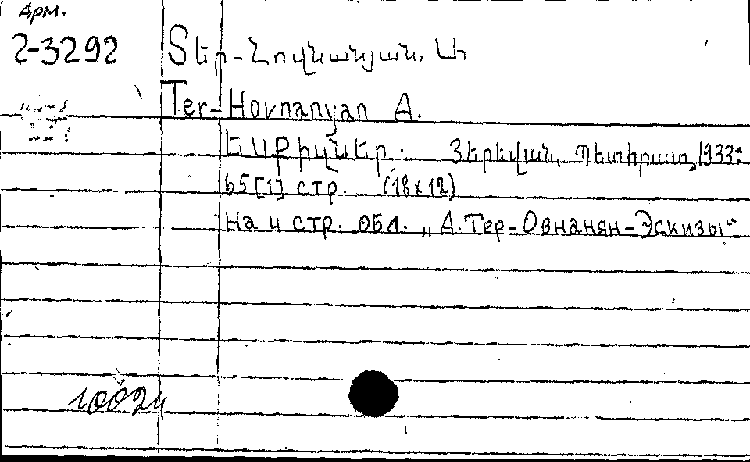 Арм.
2-3292
Տեր-Հովնանյան, Ա.
Ter-Hovnanyan A.
Եսքիզներ. Յերեվան, Պետհրատ, 1933.
65[1] стр. (18x12)
на 4 стр. обл. „А.Тер-Овнанян-Эскизы"